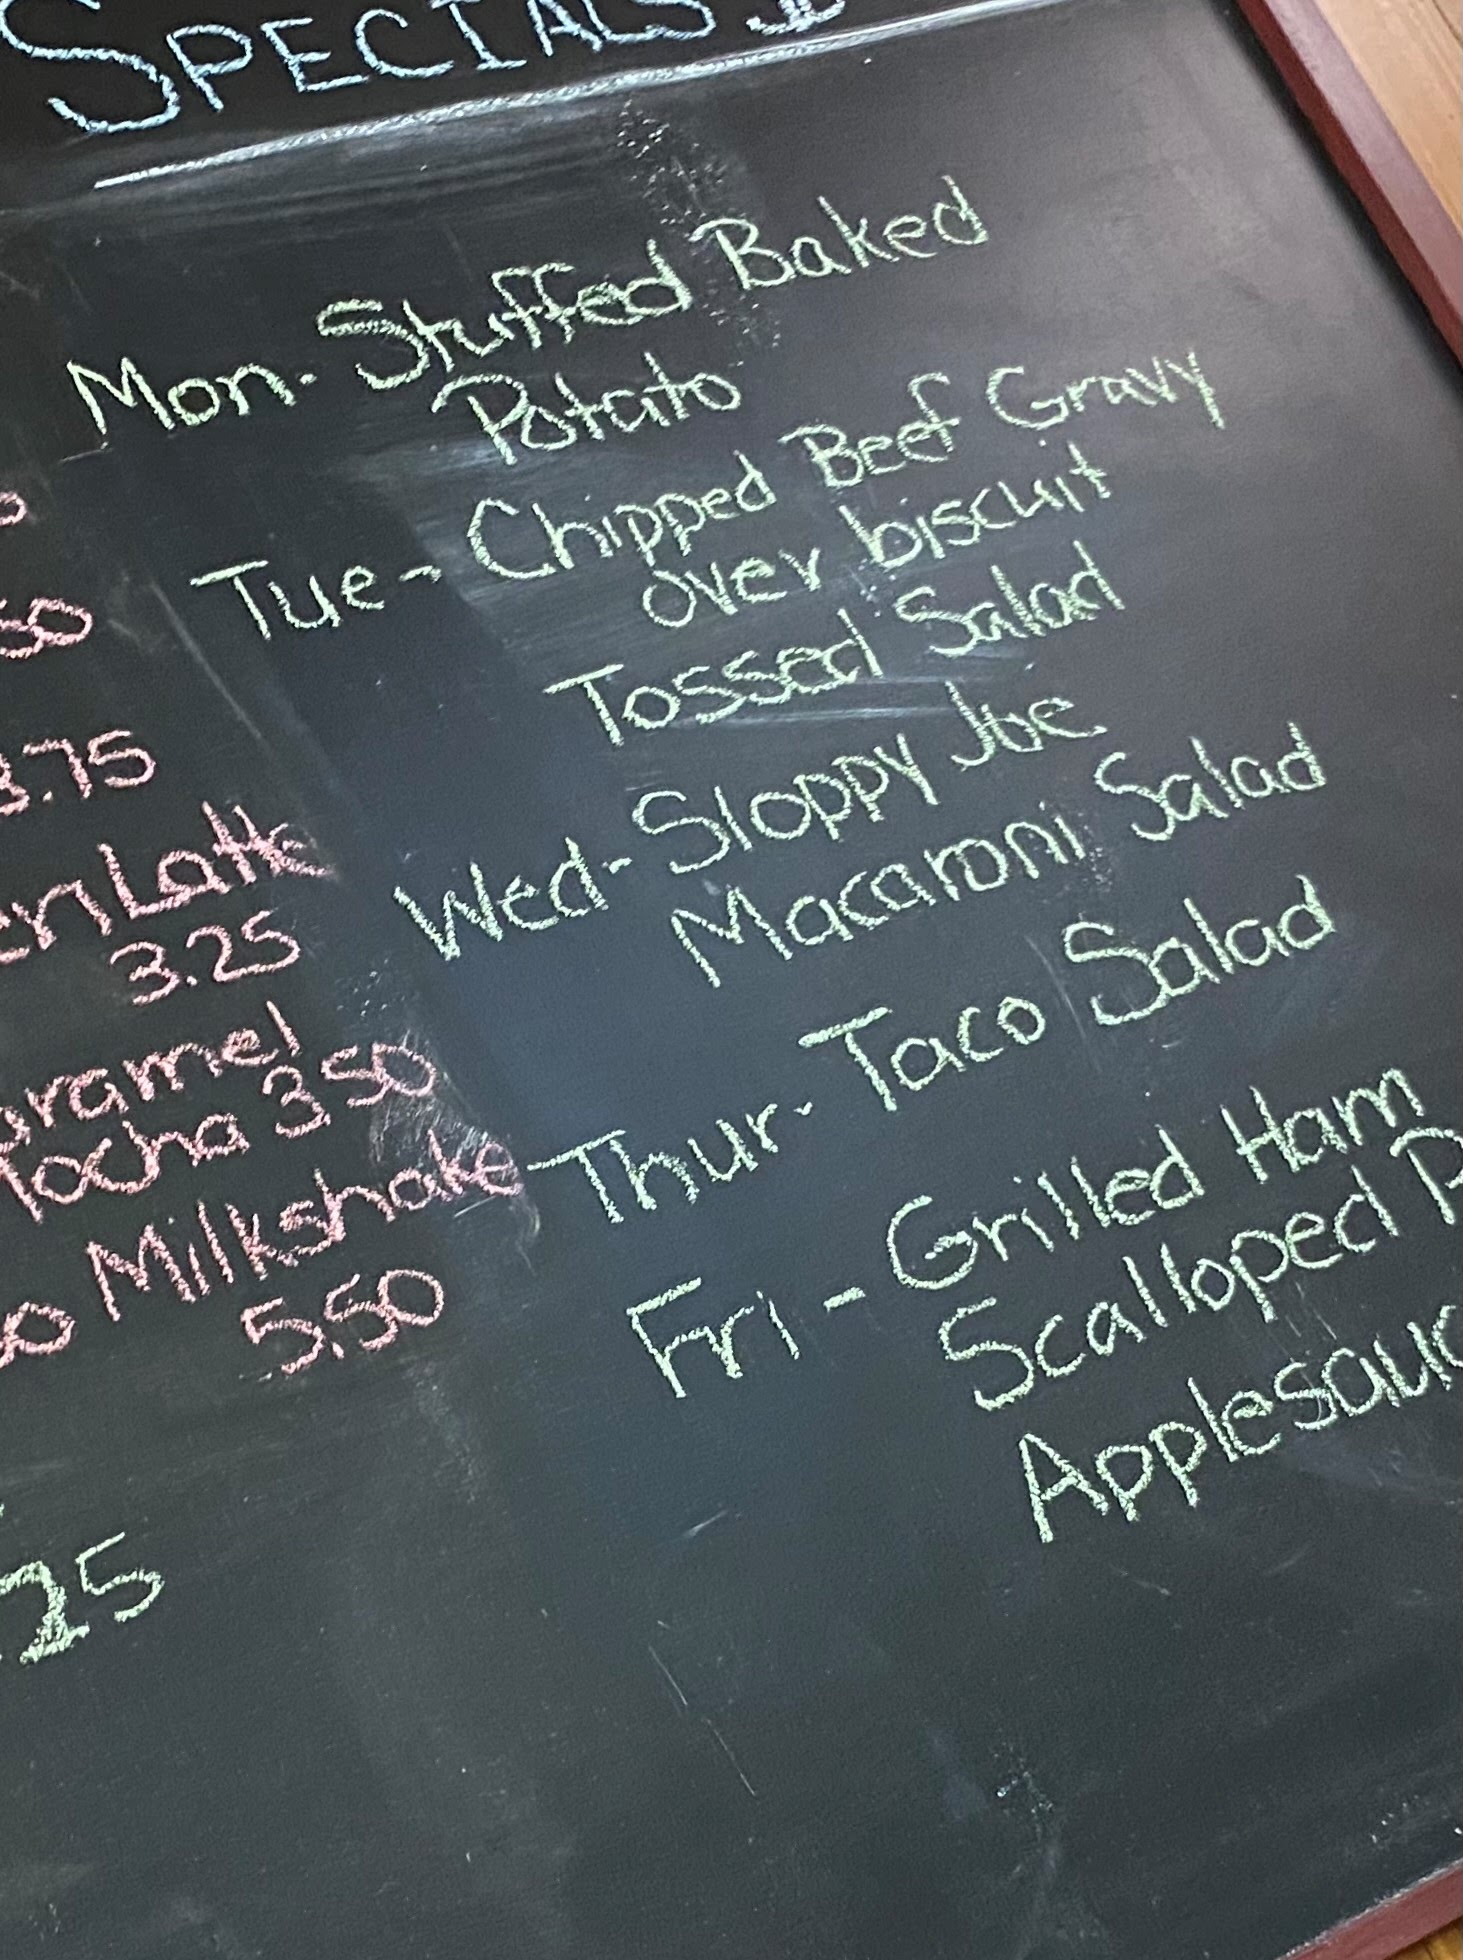 SPECIALS
Mon- Stuffed Baked
Potato
Tue- Chipped Beef Gravy
over biscuit
Tossed Salad
Wed- Sloppy Joe
Macaroni Salad
Thur- Taco Salad
Fri- Grilled Ham
Scalloped
50
.75
Latte
3.25
3.50
Milkshake
5.50